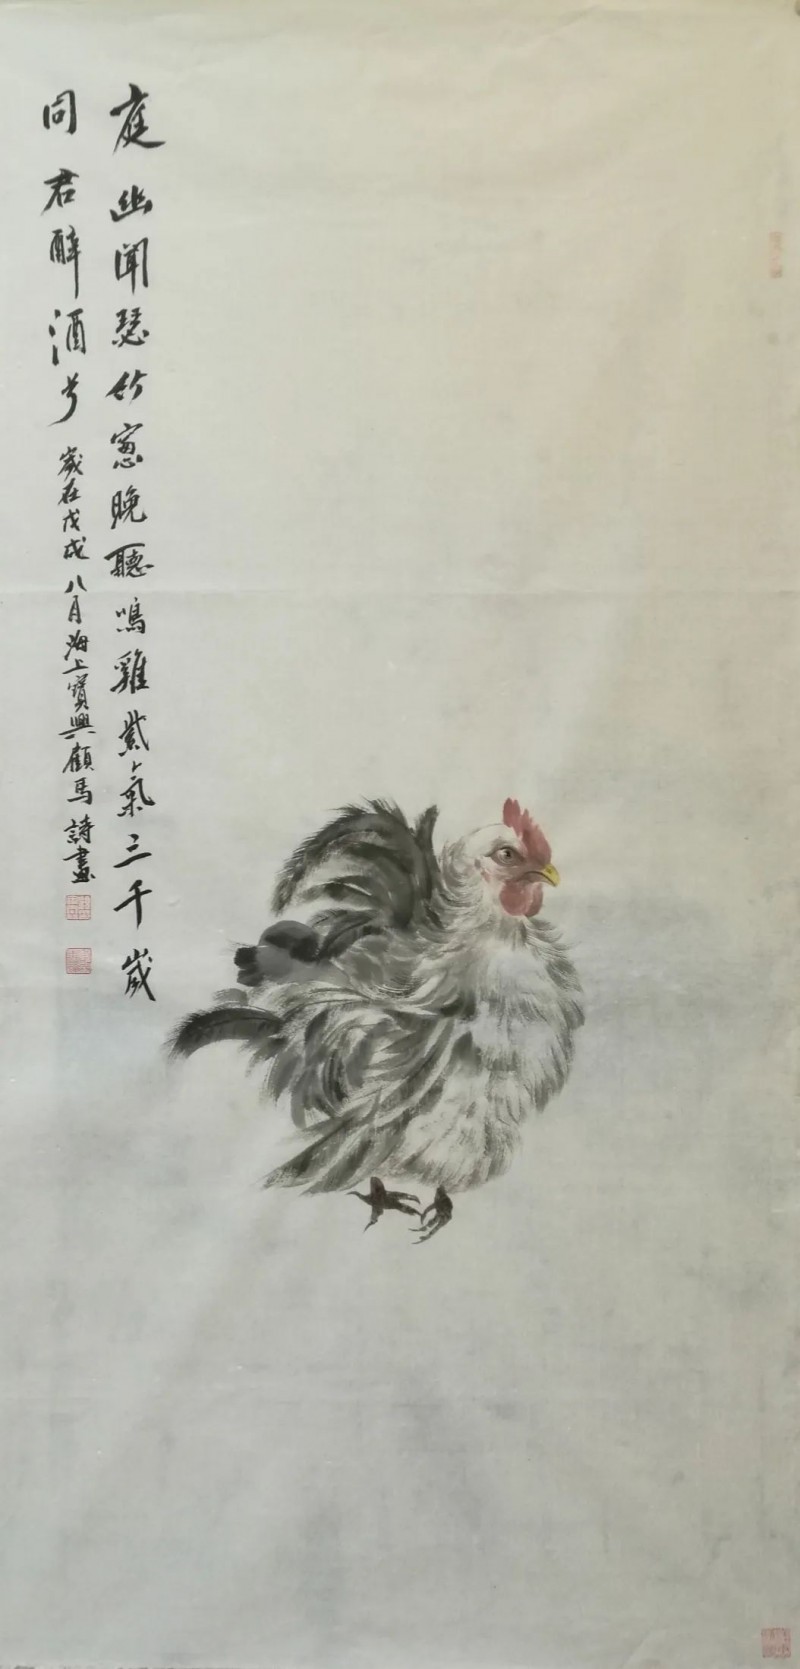 庭幽聞瑟竹窓晚聽鳴雞紫氣三千歲
同君醉酒兮 歲在戊戌八月海上寶興顧馬詩畫